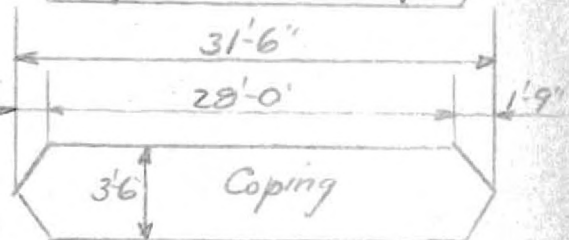 31'-6"
28'-0' 1'-9"
3'6 Coping